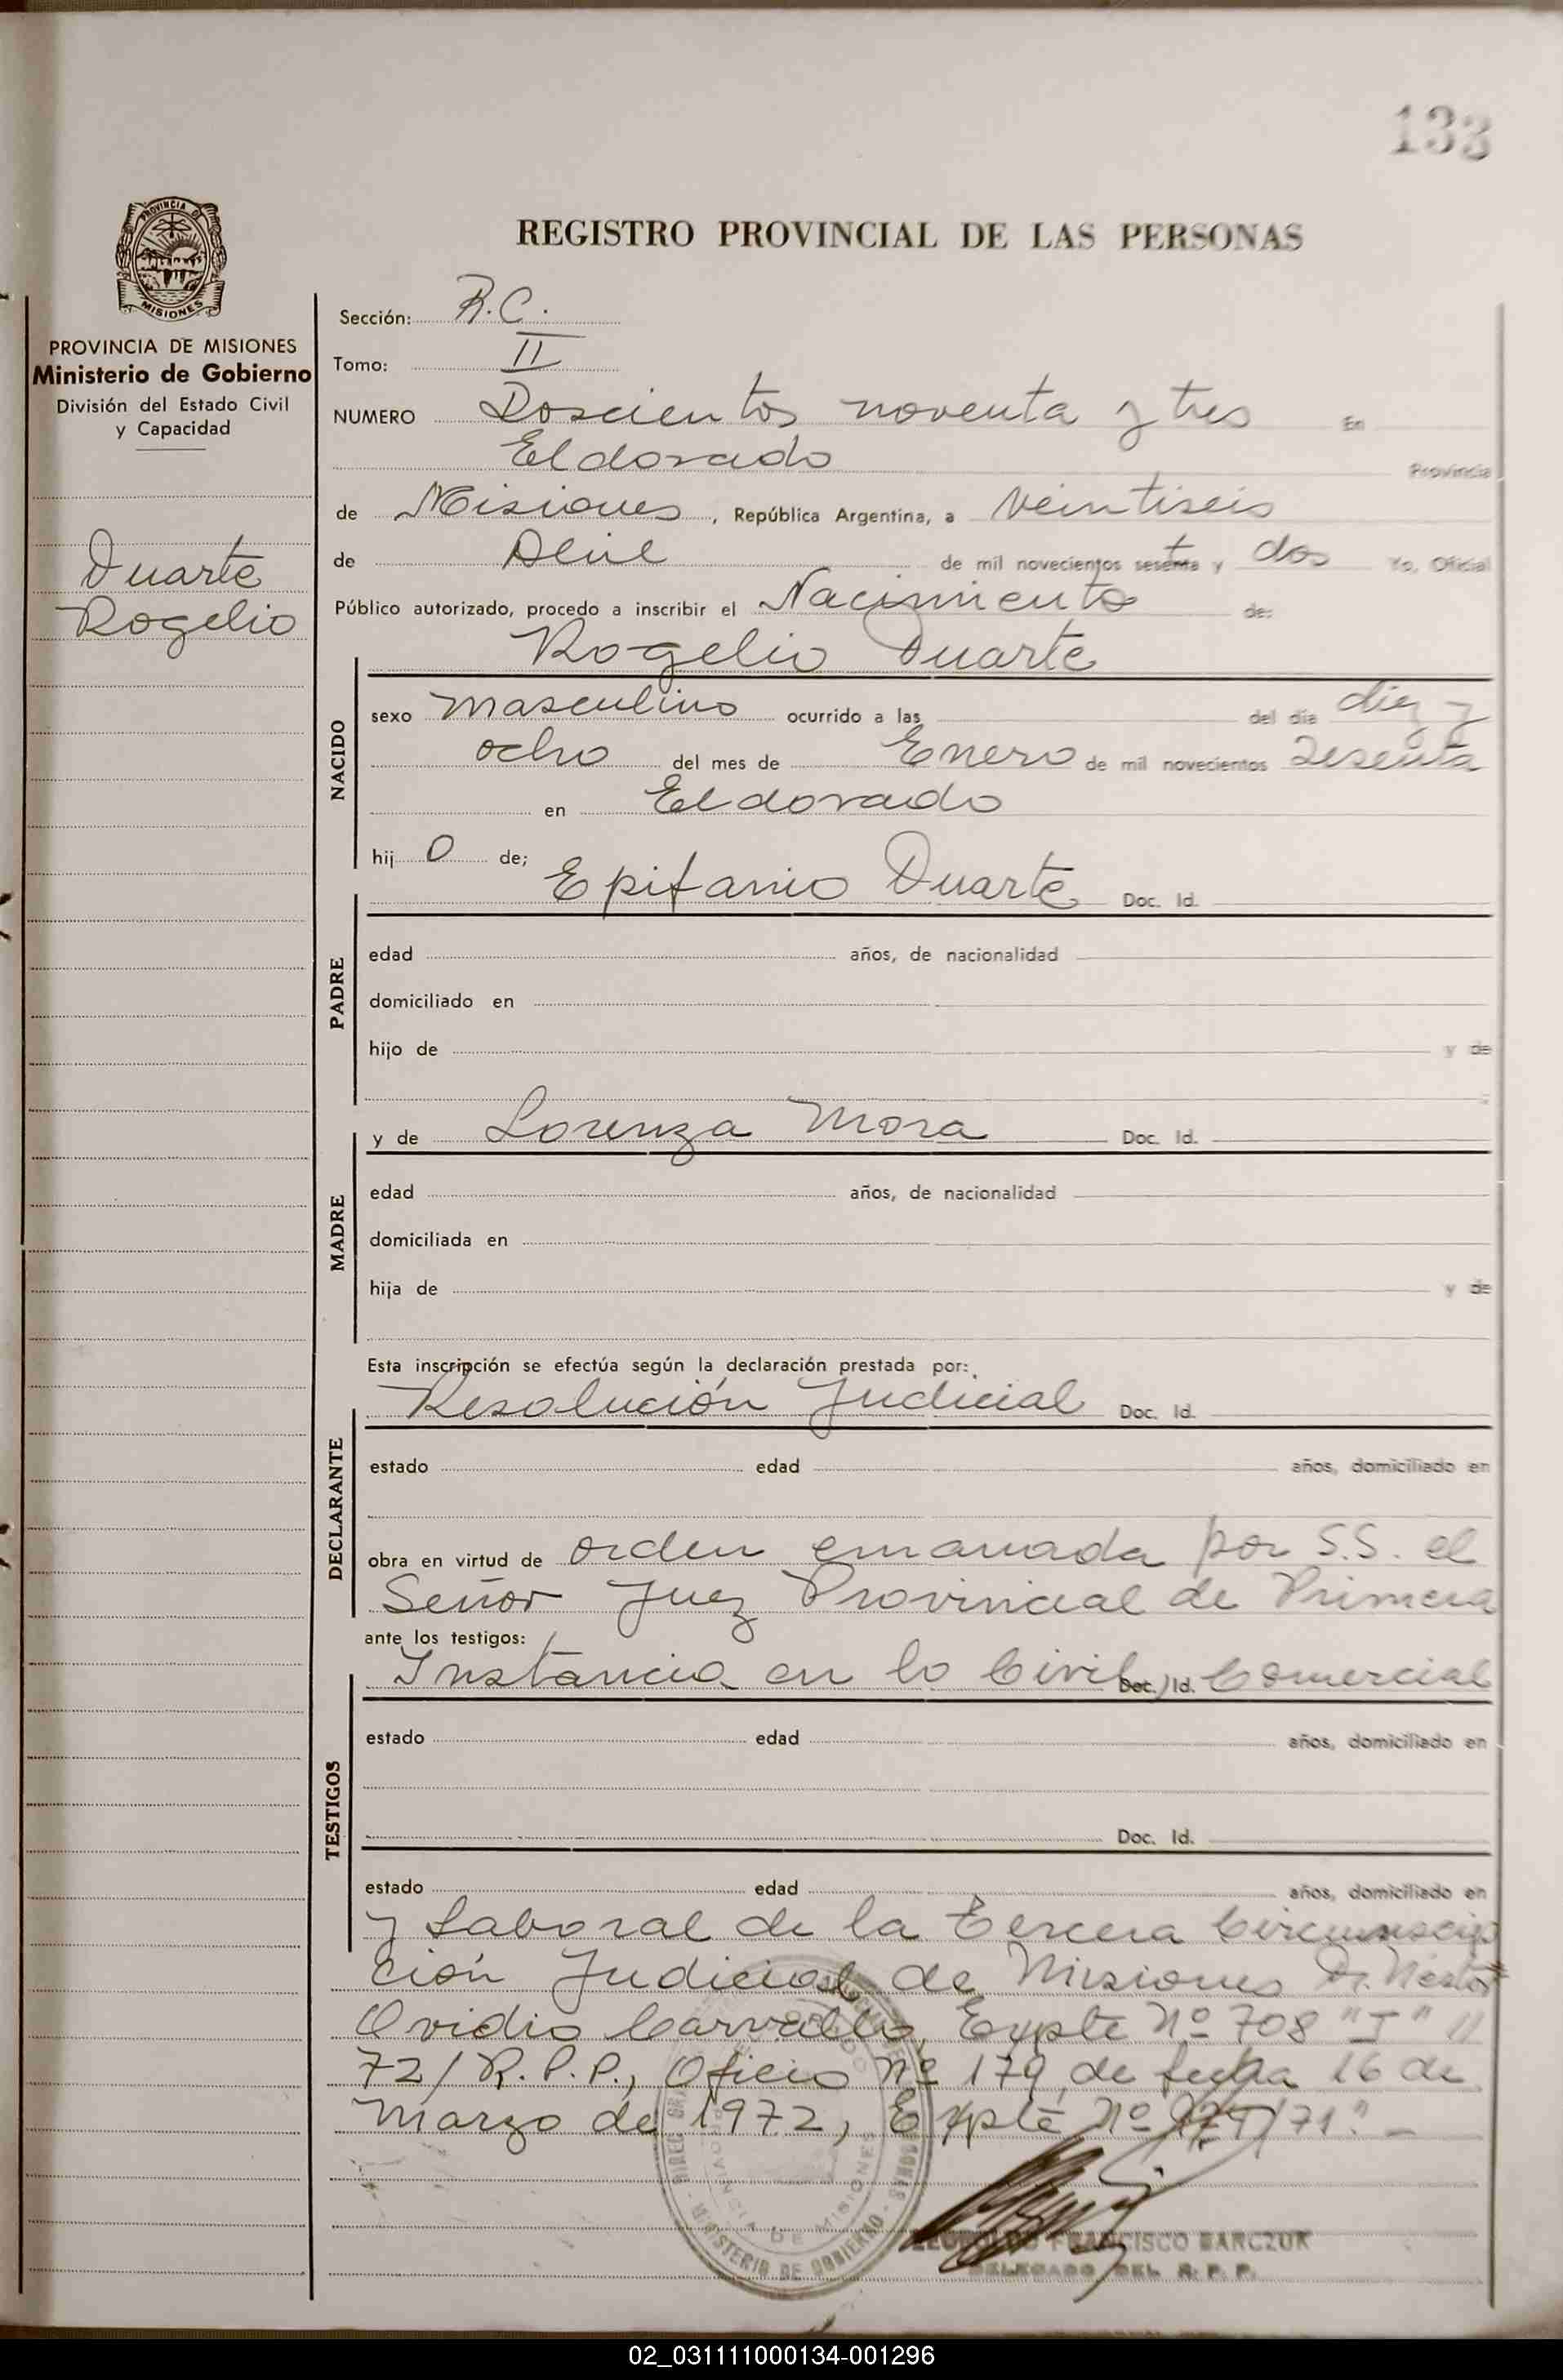 133
PROVINCIA DE
MISIONES
REGISTRO PROVINCIAL DE LAS PERSONAS
PROVINCIA DE MISIONES
Ministerio de Gobierno
División del Estado Civil
y Capacidad
Duarte
Rogelio
Sección: R.C.
Tomo: II
NUMERO Doscientos noventa y tres En
Eldorado Provincia
de Misiones, República Argentina, a Veintiseis
de Abril de mil novecientos sesenta y dos Yo, Oficial
Público autorizado, procedo a inscribir el Nacimiento de:
Rogelio Duarte
NACIDO
sexo masculino ocurrido a las del día diez y
ocho del mes de Enero de mil novecientos sesenta
en Eldorado
hij o de;
Epifanio Duarte Doc. Id.
PADRE
edad años, de nacionalidad
domiciliado en
hijo de y de
y de Lorenza Mora Doc. Id.
MADRE
edad años, de nacionalidad
domiciliada en
hija de y de
Esta inscripción se efectúa según la declaración prestada por:
Resolución Judicial Doc. Id.
DECLARANTE
estado edad años, domiciliado en
obra en virtud de orden emanada por S.S. el
Señor Juez Provincial de Primera
ante los testigos:
Instancia en lo Civil, Doc. Id. Comercial
TESTIGOS
estado edad años, domiciliado en
Doc. Id.
estado edad años, domiciliado en
y Laboral de la Tercera Circunscrip
ción Judicial de Misiones Dr. Nestor
Ovidio Carvallo, Expte Nº 708 "J" //
72/R.P.P., Oficio Nº 179, de fecha 16 de
marzo de 1972, Expte Nº /71".-
MINISTERIO DE GOBIERNO
PROVINCIA DE MISIONES
LEOPOLDO FRANCISCO BARCZUK
DELEGADO DEL R. P. P.
02_031111000134-001296